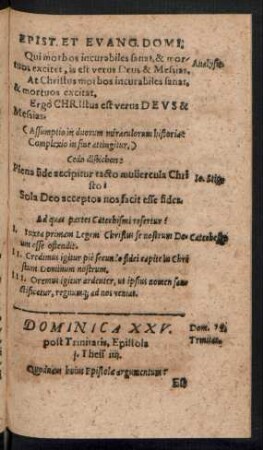 EPIST. ET EVANG. DOMI;
Qui morbos incurabiles sanat, & mor-
tuos excitet, is est verus Deus & Mesias.
Analysis.
At Christus morbos incurabiles sanat,
& mortuos excitat,
Ergò CHRIstus est verus DEVS &
Mesias.
(Assumptio in duorum miraculorum historia:
Complexio in fine attingitur.)
Cedo distichon:
Plena fide accipitur tacto muliercula Chri
sto:
Io. Stig.
Sola Deo acceptos nos facit esse fides.
Ad quas partes Catechismi refertur?
I. Iuxta primam Legem Christus se nostrum De-
um esse ostendit.
Catechesis
II. Credimus igitur piè secundo fidei capite in Chri
stum Dominum nostrum.
III. Oremus igitur ardenter, ut ipsius nomen san-
ctificetur, regnumq; ad nos veniat.
DOMINICA XXV.
post Trinitatis, Epistola
Dom. 25.
Trinitat.
j. Thess iiij.
Quodnam huius Epistolæ argumentum?
Est